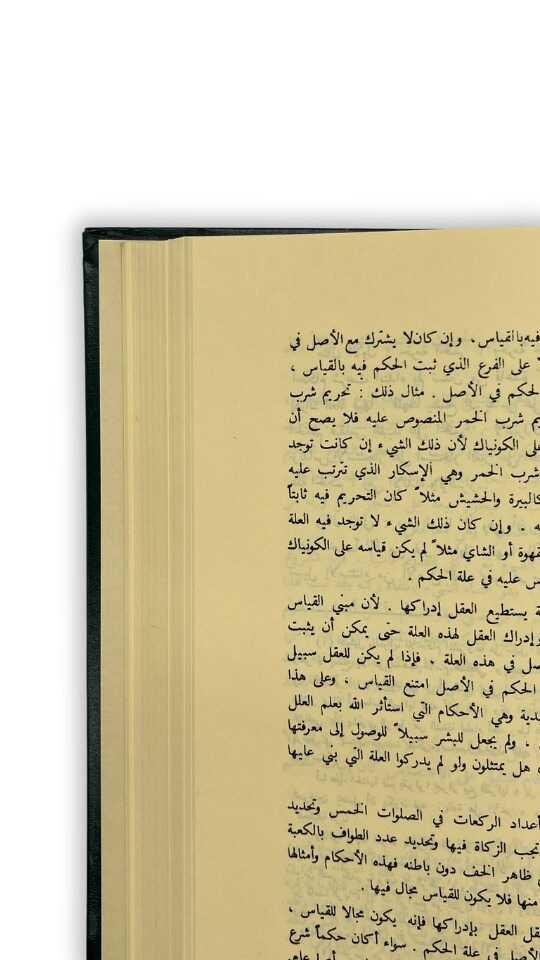 فيه بالقياس، وإن كان لا يشترك مع الأصل في
على الفرع الذي ثبت الحكم فيه بالقياس ،
الحكم في الأصل . مثال ذلك : تحريم شرب
شرب الخمر المنصوص عليه فلا يصح أن
على الكونياك لأن ذلك الشيء إن كانت توجد
شرب الخمر وهي الإسكار الذي تترتب عليه
كالبيرة والحشيش مثلاً كان التحريم فيه ثابتاً
. وإن كان ذلك الشيء لا توجد فيه العلة
قهوة أو الشاي مثلاً لم يكن قياسه على الكونياك
عليه في علة الحكم .
يستطيع العقل إدراكها . لأن مبني القياس
وإدراك العقل لهذه العلة حتى يمكن أن يثبت
في هذه العلة . فإذا لم يكن للعقل سبيل
الحكم في الأصل امتنع القياس ، وعلى هذا
وهي الأحكام التي استأثر الله بعلم العلل
، ولم يجعل للبشر سبيلاً للوصول إلى معرفتها
هل يمتثلون ولو لم يدركوا العلة التي بني عليها
أعداد الركعات في الصلوات الخمس وتحديد
تجب الزكاة فيها وتحديد عدد الطواف بالكعبة
ظاهر الخف دون باطنه فهذه الأحكام وأمثالها
منها فلا يكون للقياس مجال فيها .
العقل بإدراكها فإنه يكون مجالا للقياس ،
الأصل في علة الحكم . سواء أكان حكماً شرع